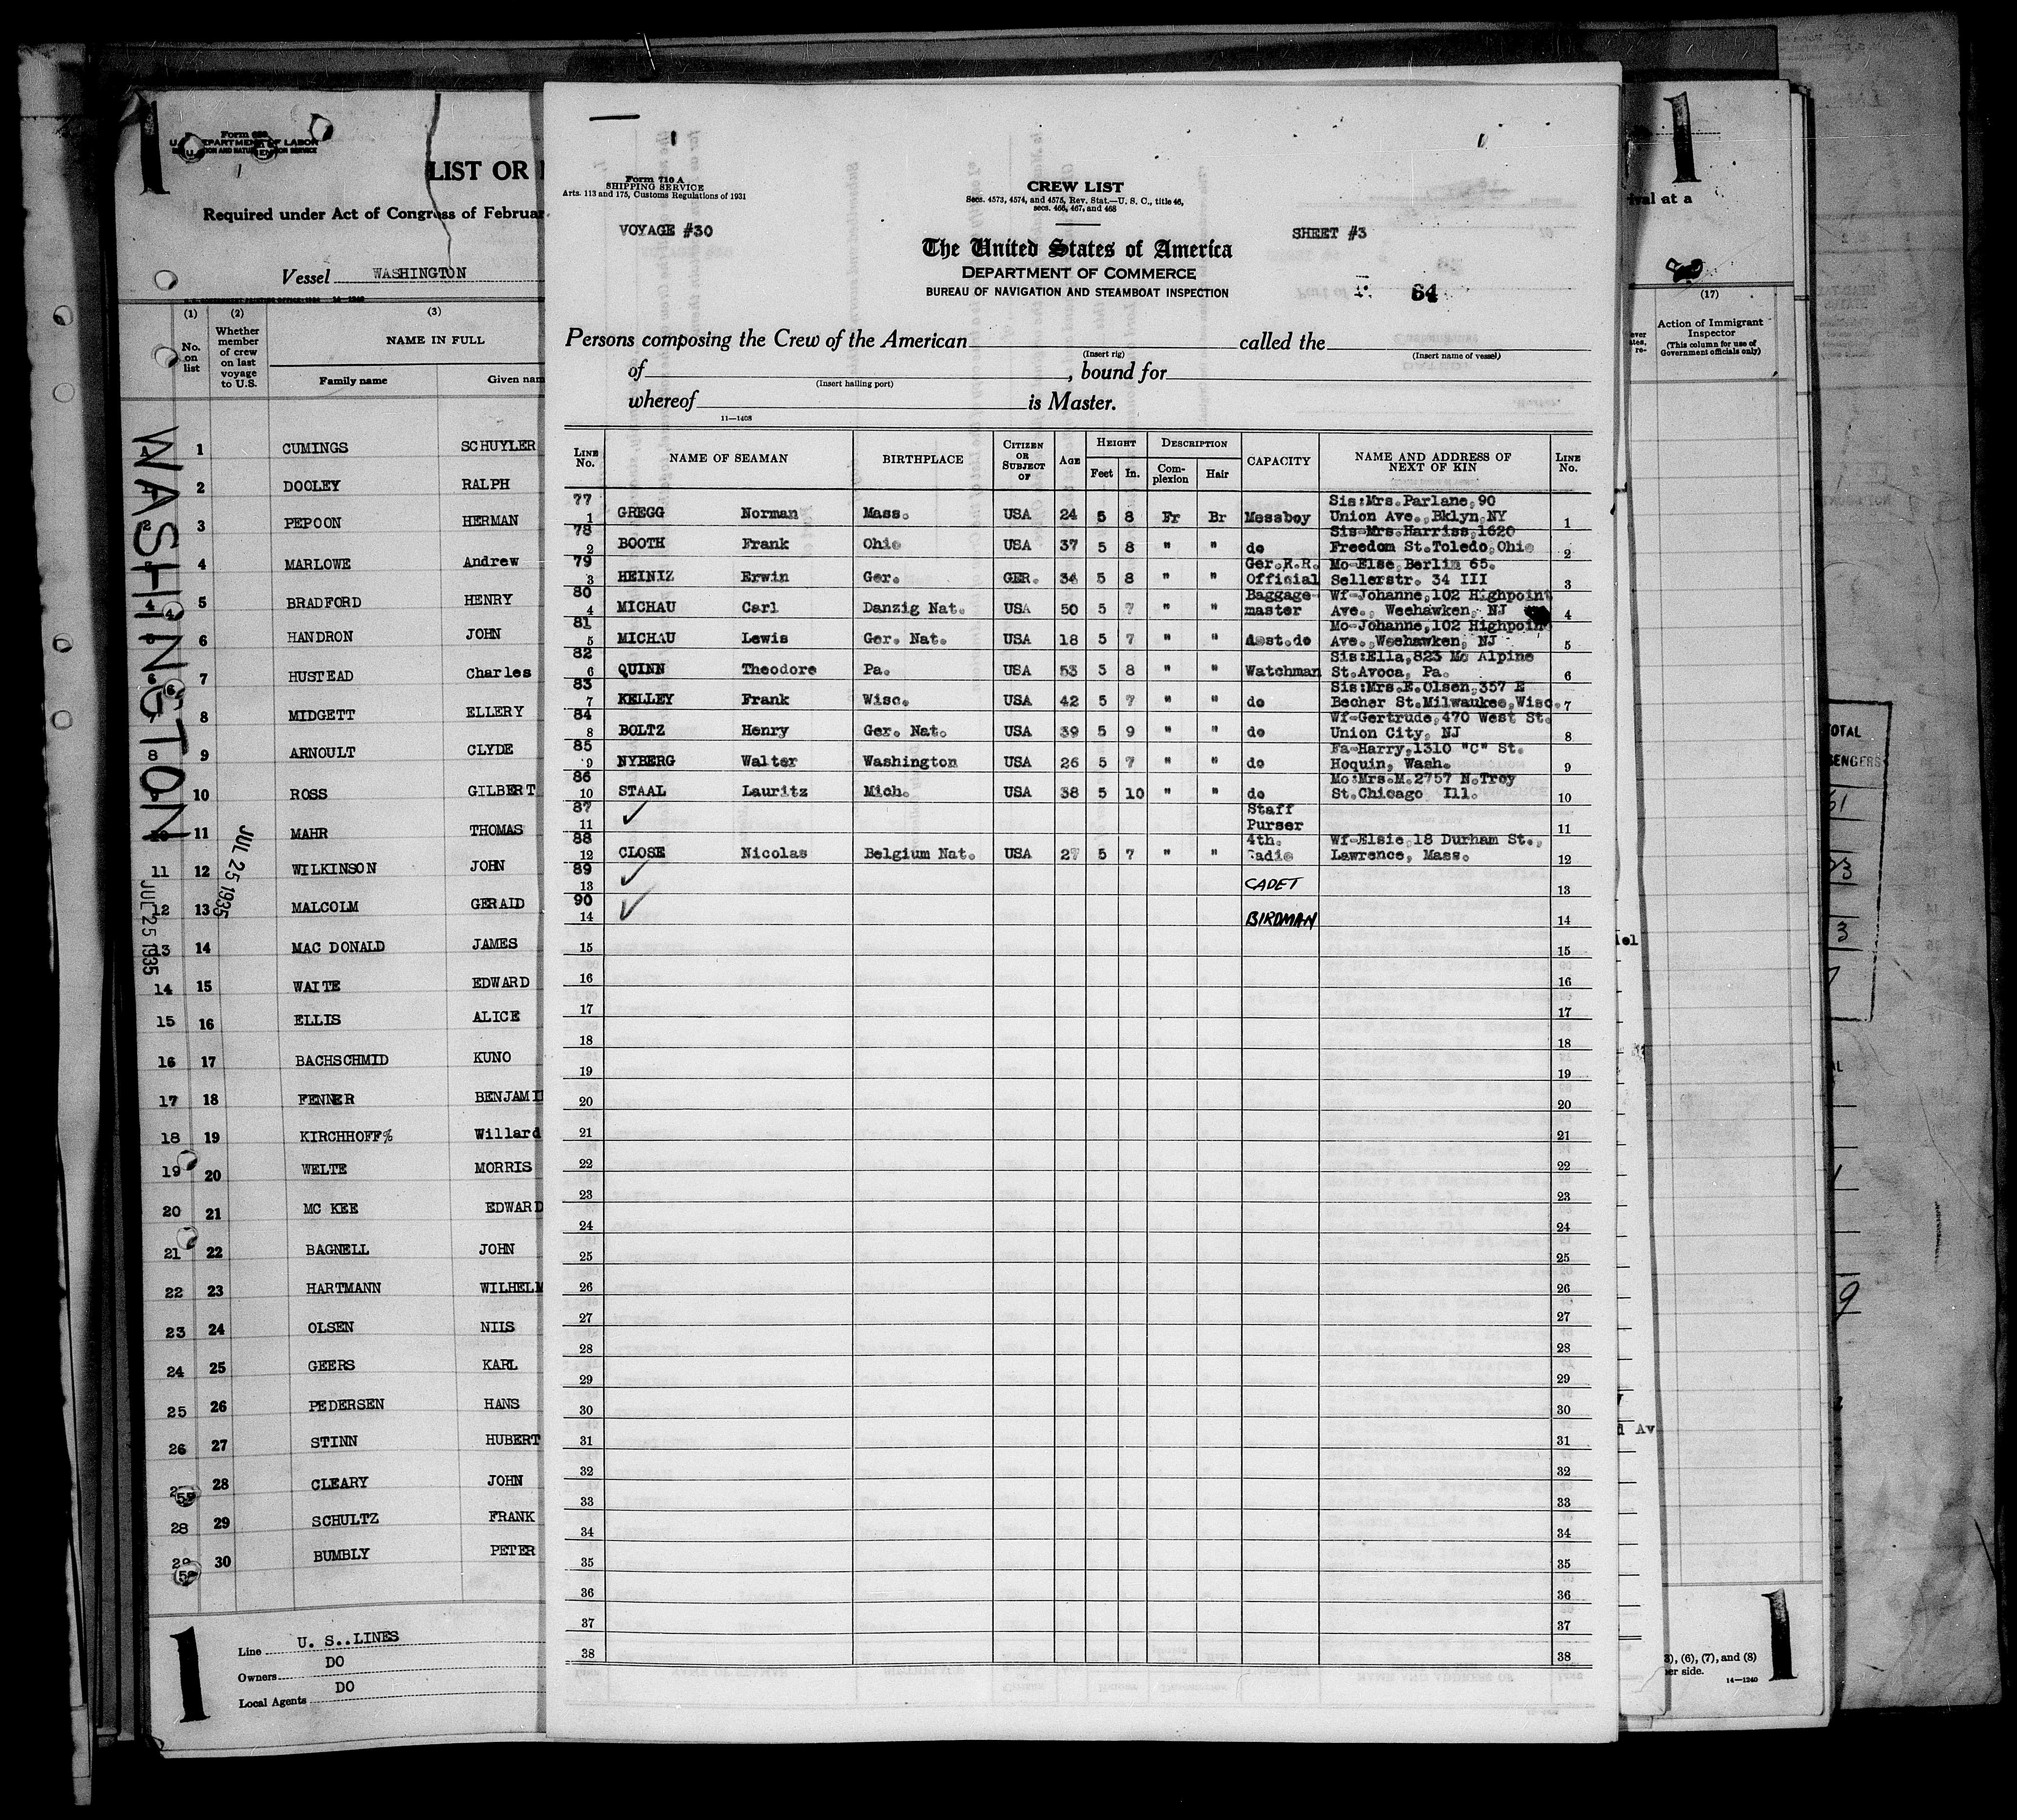 1
Form 680
U. S. DEPARTMENT OF LABOR
LIST OR
Required under Act of Congress of Februar
Vessel WASHINGTON
(1) (2) (3)
No. on list
Whether member of crew on last voyage to U.S.
NAME IN FULL
Family name Given nam
WASHINGTON
JUL 25 1935
JUL 25 1935
1 CUMINGS SCHUYLER
2 DOOLEY RALPH
2 3 PEPOON HERMAN
4 MARLOWE Andrew
4 5 BRADFORD HENRY
6 HANDRON JOHN
6 7 HUSTEAD Charles
8 MIDGETT ELLERY
8 9 ARNOULT CLYDE
10 ROSS GILBERT
10 11 MAHR THOMAS
11 12 WILKINSON JOHN
12 13 MALCOLM GERALD
13 14 MAC DONALD JAMES
14 15 WAITE EDWARD
15 16 ELLIS ALICE
16 17 BACHSCHMID KUNO
17 18 FENNER BENJAMI
18 19 KIRCHHOFF% Willard
19 20 WELTE MORRIS
20 21 MC KEE EDWARD
21 22 BAGNELL JOHN
22 23 HARTMANN WILHELM
23 24 OLSEN NILS
24 25 GEERS KARL
25 26 PEDERSEN HANS
26 27 STINN HUBERT
28 CLEARY JOHN
28 29 SCHULTZ FRANK
29 30 BUMBLY PETER
1
Line U. S..LINES
Owners DO
Local Agents DO
Form 710 A
SHIPPING SERVICE
Arts. 113 and 175, Customs Regulations of 1931
VOYAGE #30
CREW LIST
Secs. 4573, 4574, and 4575, Rev. Stat.—U. S. C., title 46,
secs. 466, 467, and 468
SHEET #3
The United States of America
DEPARTMENT OF COMMERCE
BUREAU OF NAVIGATION AND STEAMBOAT INSPECTION
64
Persons composing the Crew of the American called the
(Insert rig) (Insert name of vessel)
of , bound for
(Insert hailing port)
whereof is Master.
11—1408
LINE No. NAME OF SEAMAN BIRTHPLACE CITIZEN OR SUBJECT OF AGE HEIGHT DESCRIPTION CAPACITY NAME AND ADDRESS OF NEXT OF KIN LINE No.
Feet In. Complexion Hair
77 Sis:Mrs.Parlane,90
1 GREGG Norman Mass. USA 24 5 8 Fr Br Messboy Union Ave.,Bklyn,NY 1
78 Sis-Mrs.Harriss,1620
2 BOOTH Frank Ohio USA 37 5 8 " " do Freedom St.Toledo,Ohio 2
79 Ger.R.R. Mo-Else,Berlin 65.
3 HEINIZ Erwin Ger. GER. 34 5 8 " " Official Sellerstr. 34 III 3
80 Baggage- Wf-Johanne,102 Highpoint
4 MICHAU Carl Danzig Nat. USA 50 5 7 " " master Ave., Weehawken, NJ 4
81 Mo-Johanne,102 Highpoint
5 MICHAU Lewis Ger. Nat. USA 18 5 7 " " Asst.do Ave.,Weehawken, NJ 5
82 Sis:Ella,823 Mc Alpine
6 QUINN Theodore Pa. USA 53 5 8 " " Watchman St.Avoca, Pa. 6
83 Sis:Mrs.E.Olsen,357 E
7 KELLEY Frank Wisc. USA 42 5 7 " " do Becher St.Milwaukee,Wisc. 7
84 Wf-Gertrude,470 West St.
8 BOLTZ Henry Ger. Nat. USA 39 5 9 " " do Union City, NJ 8
85 Fa-Harry,1310 "C" St.
9 NYBERG Walter Washington USA 26 5 7 " " do Hoquin, Wash. 9
86 Mo:Mrs.M.2757 N.Troy
10 STAAL Lauritz Mich. USA 38 5 10 " " do St.Chicago Ill. 10
87 Staff
11 ✓ Purser 11
88 4th. Wf-Elsie,18 Durham St.,
12 CLOSE Nicolas Belgium Nat. USA 27 5 7 " " Radio Lawrence, Mass. 12
89
13 ✓ CADET 13
90
14 ✓ BIRDMAN 14
15 15
16 16
17 17
18 18
19 19
20 20
21 21
22 22
23 23
24 24
25 25
26 26
27 27
28 28
29 29
30 30
31 31
32 32
33 33
34 34
35 35
36 36
37 37
38 38
1
ival at a
(17)
Action of Immigrant Inspector
(This column for use of Government officials only)
iel
d Av
3), (6), (7), and (8)
er side.
14—1240
1
OTAL
SENGERS
61
3
3
9